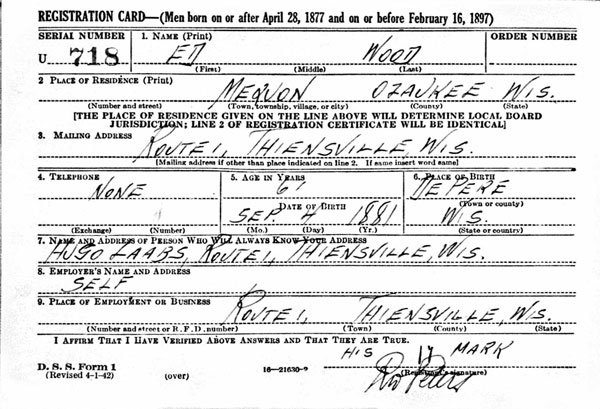 REGISTRATION CARD—(Men born on or after April 28, 1877 and on or before February 16, 1897)
SERIAL NUMBER 1. NAME (Print) ORDER NUMBER
U 718 ED WOOD
(First) (Middle) (Last)
2 PLACE OF RESIDENCE (Print)
MEQUON OZAUKEE WIS.
(Number and street) (Town, township, village, or city) (County) (State)
[THE PLACE OF RESIDENCE GIVEN ON THE LINE ABOVE WILL DETERMINE LOCAL BOARD
JURISDICTION; LINE 2 OF REGISTRATION CERTIFICATE WILL BE IDENTICAL]
3. MAILING ADDRESS
ROUTE 1, THIENSVILLE, WIS.
[Mailing address if other than place indicated on line 2. If same insert word same]
4. TELEPHONE 5. AGE IN YEARS 6. PLACE OF BIRTH
NONE 61 DE PERE
DATE OF BIRTH (Town or county)
SEP. 4 1881 WIS.
(Exchange) (Number) (Mo.) (Day) (Yr.) (State or country)
7. NAME AND ADDRESS OF PERSON WHO WILL ALWAYS KNOW YOUR ADDRESS
HUGO LAABS, ROUTE 1, THIENSVILLE, WIS.
8. EMPLOYER'S NAME AND ADDRESS
SELF
9. PLACE OF EMPLOYMENT OR BUSINESS
ROUTE 1, THIENSVILLE, WIS.
(Number and street or R. F. D. number) (Town) (County) (State)
I AFFIRM THAT I HAVE VERIFIED ABOVE ANSWERS AND THAT THEY ARE TRUE.
HIS MARK
D. S. S. Form 1
(Revised 4-1-42) (over) 16—21630-2 (Registrant's signature)
Peters